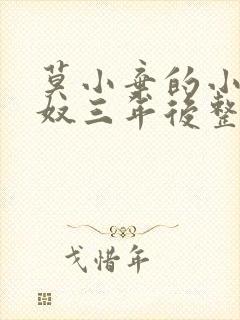 莫小弃的小
奴三年後整
戈惜年